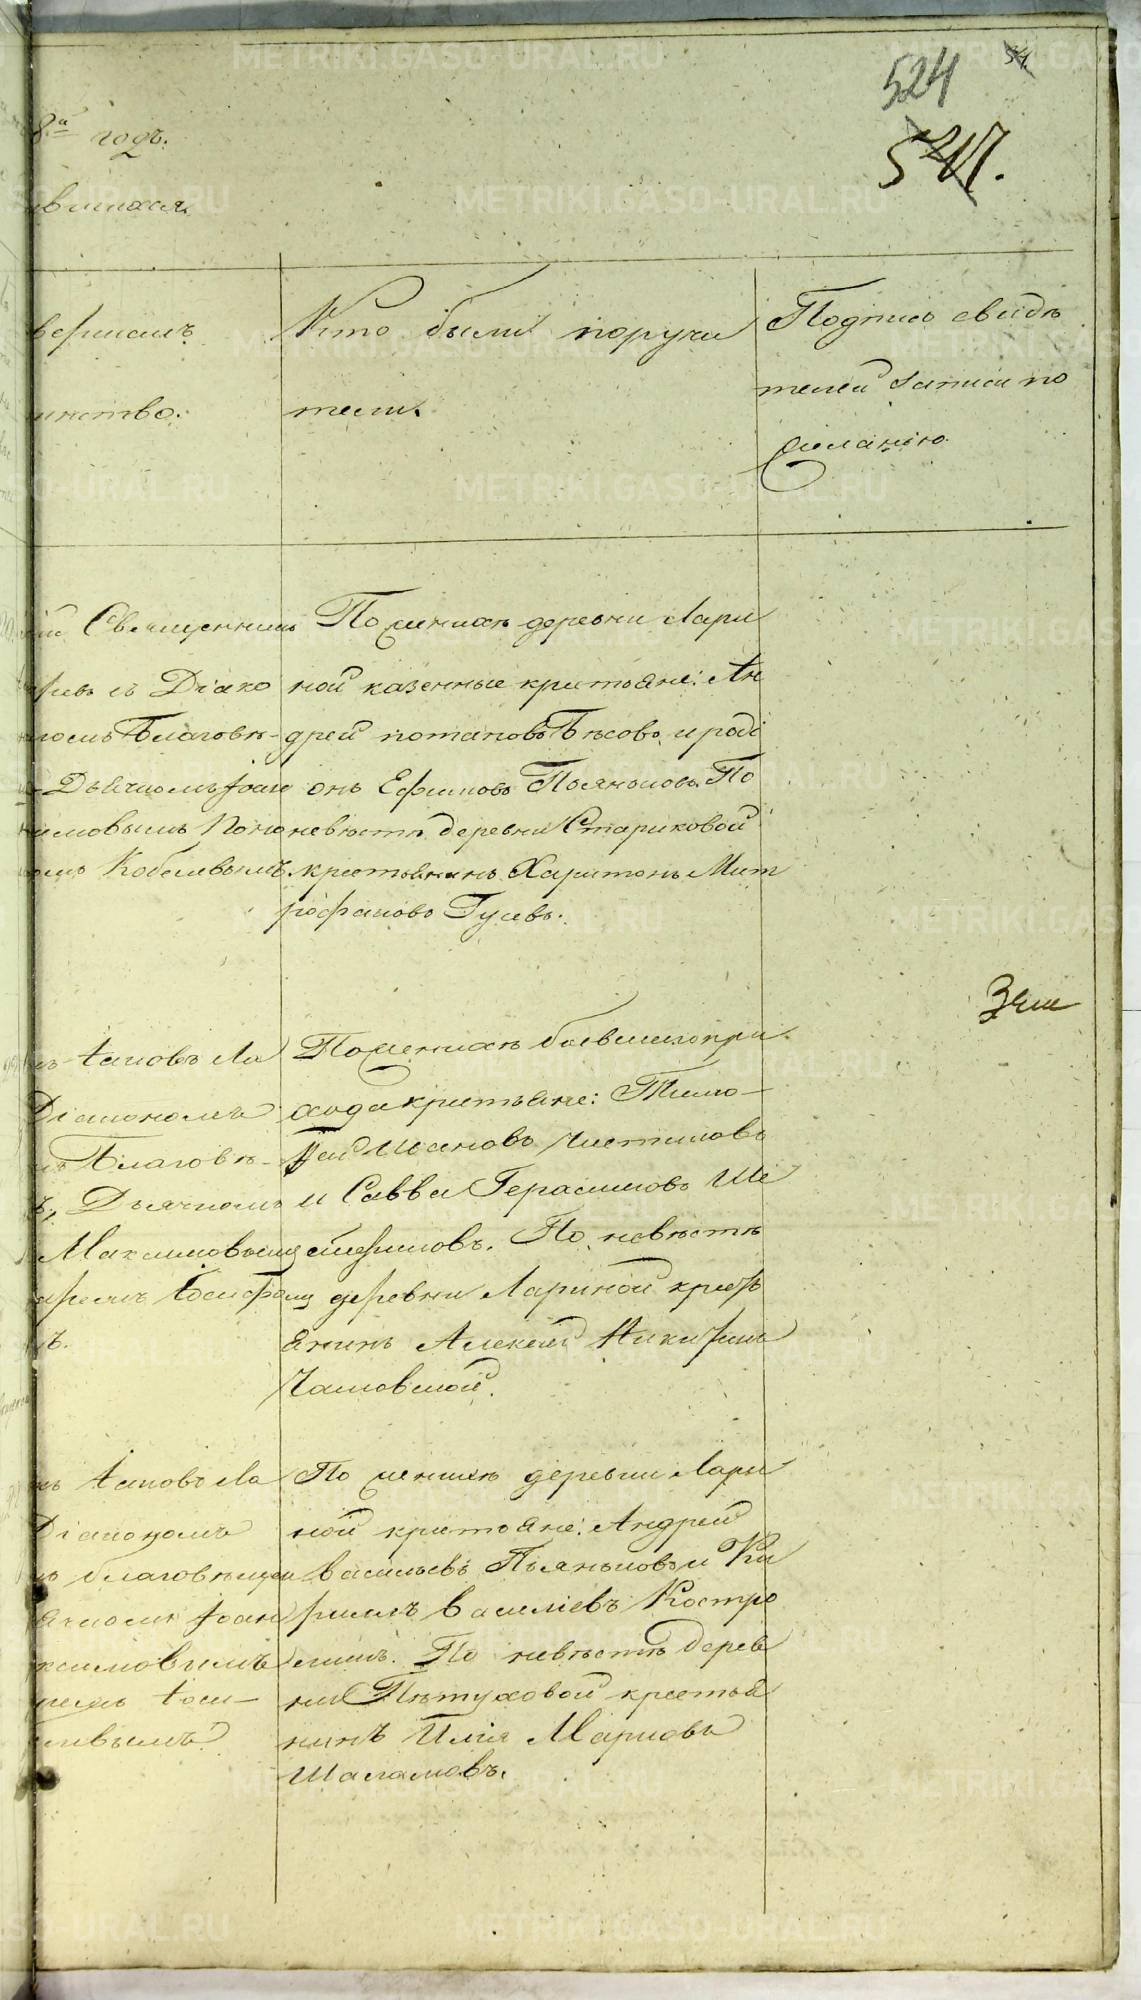 524
547.
8.ª годъ.
вшихся.
вершалъ
инство.
Кто были поручи
тели.
Подпись свидѣ
телей записи по
желанію
Священникъ
ревъ съ Діако
номъ Благовѣ-
Дьячкомъ Іоан
имовымъ Поно
Кобелевымъ.
По женихѣ деревни Лари
ной казенные крестьяне: Ан
дрей Потаповъ Бѣсовъ, и роді
онъ Ефимовъ Пьянковъ. По
невѣстѣ деревни Стариковой
крестьянинъ Харитонъ Мит
рофановъ Гусевъ.
Зри
Іаковъ Ла
Діакономъ
Благовѣ-
Дьячкомъ
Максимовымъ
аремъ Іосифомъ
По женихѣ бывшаго при
хода крестьяне: Тимо-
ѳей Ивановъ Чистяковъ
и Савва Герасимовъ Ше
По невѣстѣ
деревни Лариной крест
янинъ Алексей Никитинъ
Іаковъ Ла
Діакономъ
благовѣщен
ячкомъ Іоан
ксимовымъ
Іоси-
левымъ
По женихѣ деревни Лари
ной крестьяне: Андрей
Васильевъ Пьянковъ и Ки
рилъ Василіевъ Костро
минъ. По невѣстѣ дерев
ни Пѣтуховой крестья
нинъ Илія Марковъ
Шаламовъ.
METRIKI.GASO-URAL.RU